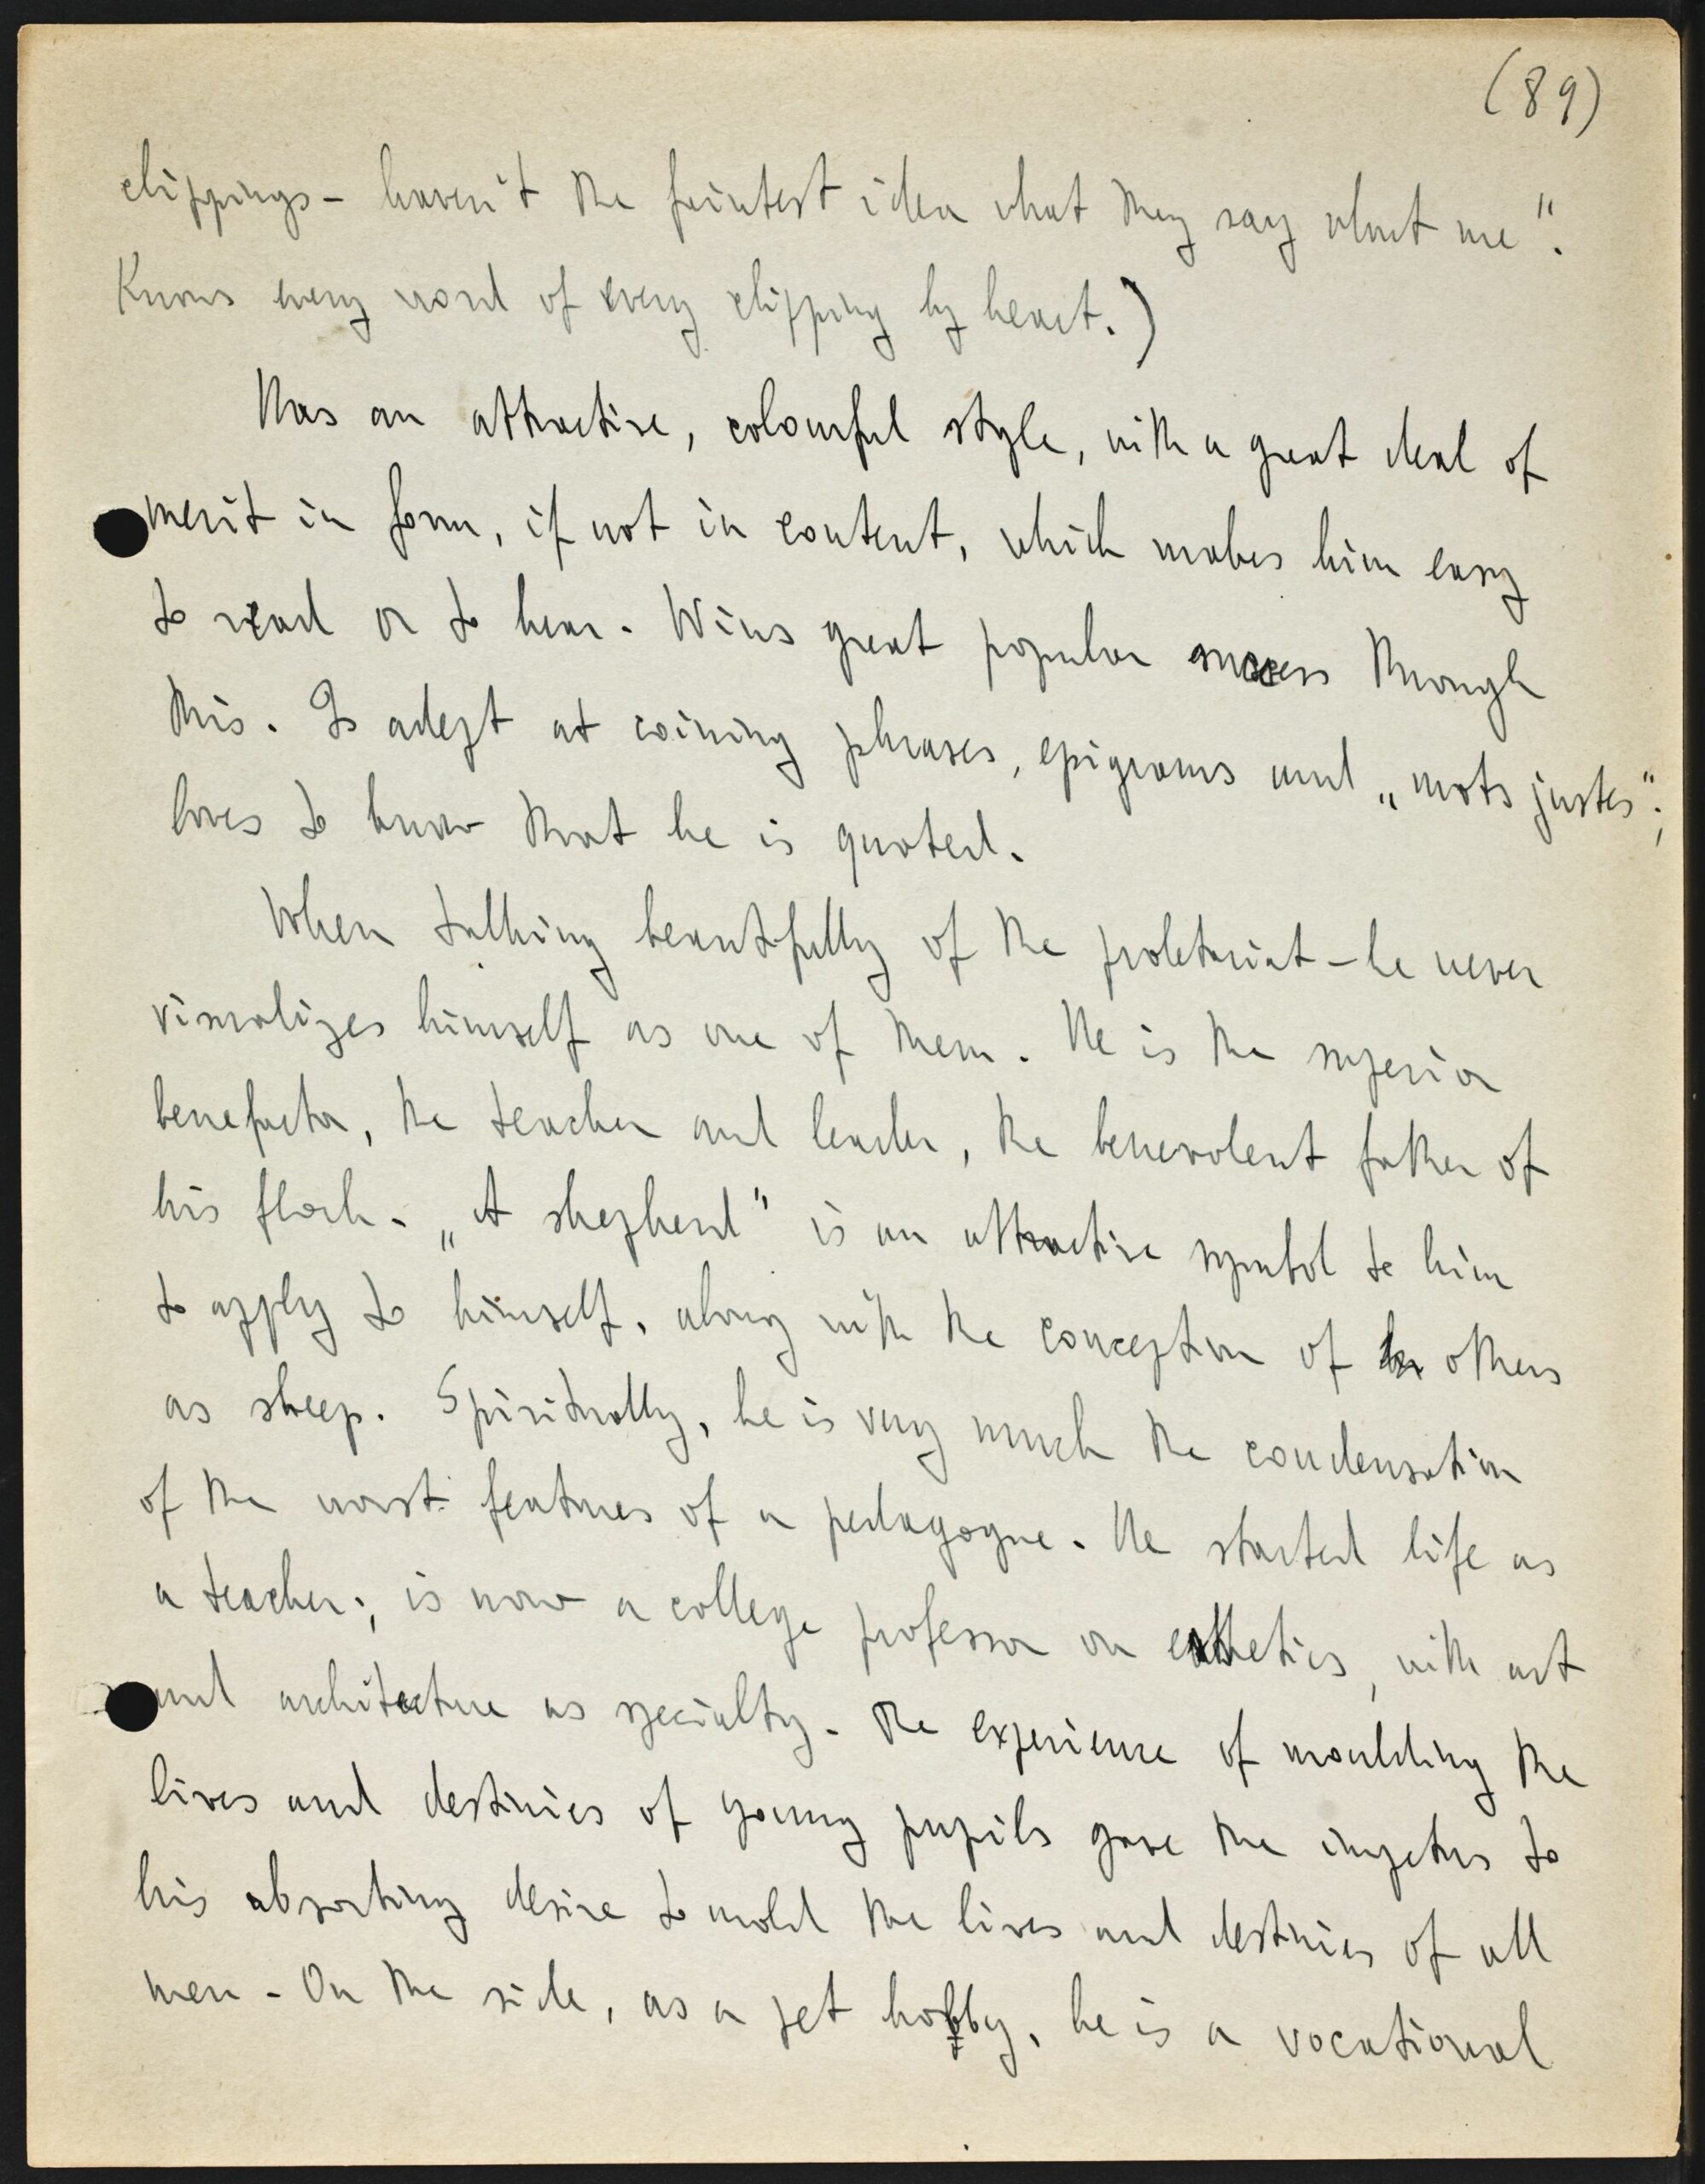 (89)
clippings - haven't the faintest idea what they say about me".
Knows every word of every clipping by heart.)
Has an attractive, colourful style, with a great deal of
merit in form, if not in content, which makes him easy
to read or to hear. Wins great popular success through
this. Is adept at coining phrases, epigrams and „mots justes";
loves to know that he is quoted.
When talking beautifully of the proletariat - he never
visualizes himself as one of them. He is the superior
benefactor, the teacher and leader, the benevolent father of
his flock. „A shepherd" is an attractive symbol to him
to apply to himself, along with the conception of others
as sheep. Spiritually, he is very much the condensation
of the worst features of a pedagogue. He started life as
a teacher; is now a college professor on esthetics, with art
and architecture as specialty. The experience of moulding the
lives and destinies of young pupils gave the impetus to
his absorbing desire to mold the lives and destinies of all
men. On the side, as a pet hobby, he is a vocational